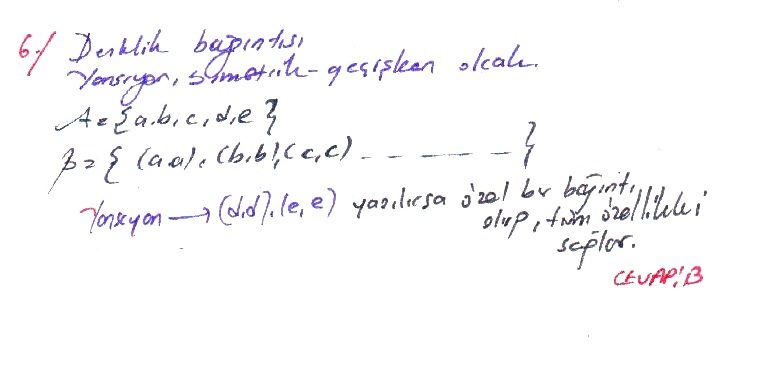 6-/ Denklik bağıntısı
Yansıyan, simetrik-geçişken olcak.
A={a,b,c,d,e}
β={ (a,a), (b,b),(c,c) - - - - - - }
Yansıyan → (d,d),(e,e) yazılırsa özel bir bağıntı
olup, tüm özellikleri
sağlar.
CEVAP: B